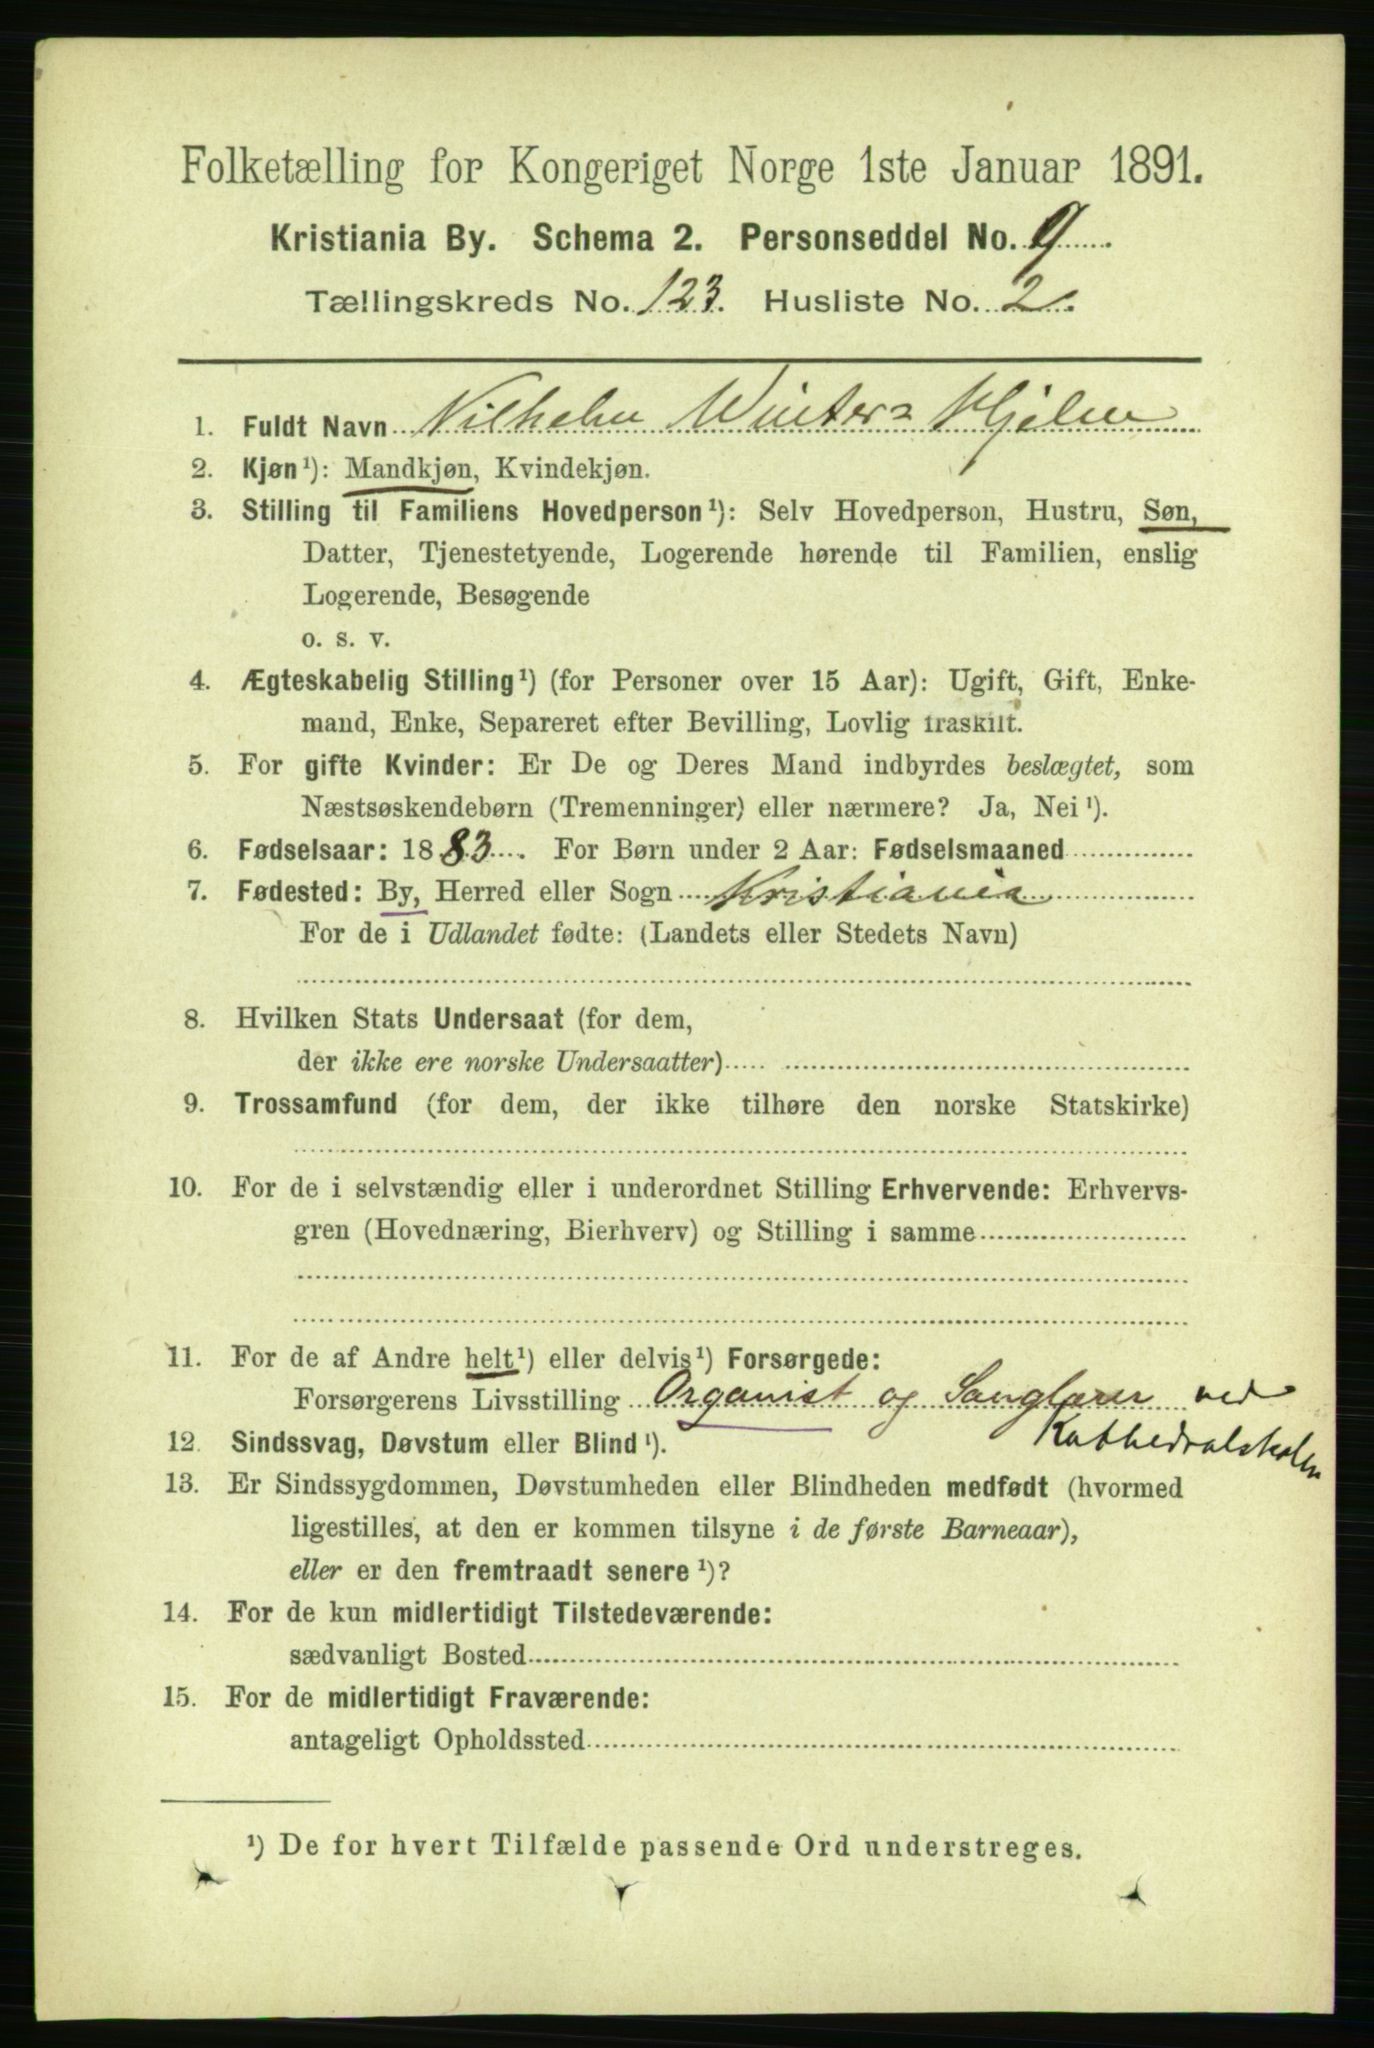 Folketælling for Kongeriget Norge 1ste Januar 1891.
Kristiania By. Schema 2. Personseddel No. 9
Tællingskreds No. 123. Husliste No. 2.
1. Fuldt Navn Vilhelm Winter-Hjelm
2. Kjøn ¹): Mandkjøn, Kvindekjøn.
3. Stilling til Familiens Hovedperson ¹): Selv Hovedperson, Hustru, Søn,
Datter, Tjenestetyende, Logerende hørende til Familien, enslig
Logerende, Besøgende
o. s. v.
4. Ægteskabelig Stilling ¹) (for Personer over 15 Aar): Ugift, Gift, Enke-
mand, Enke, Separeret efter Bevilling, Lovlig fraskilt.
5. For gifte Kvinder: Er De og Deres Mand indbyrdes beslægtet, som
Næstsøskendebørn (Tremenninger) eller nærmere? Ja, Nei ¹).
6. Fødselsaar: 1883. For Børn under 2 Aar: Fødselsmaaned
7. Fødested: By, Herred eller Sogn Kristiania
For de i Udlandet fødte: (Landets eller Stedets Navn)
8. Hvilken Stats Undersaat (for dem,
der ikke ere norske Undersaatter)
9. Trossamfund (for dem, der ikke tilhøre den norske Statskirke)
10. For de i selvstændig eller i underordnet Stilling Erhvervende: Erhvervs-
gren (Hovednæring, Bierhverv) og Stilling i samme
11. For de af Andre helt ¹) eller delvis ¹) Forsørgede:
Forsørgerens Livsstilling Organist og Sanglærer ved
Kathedralskolen
12. Sindssvag, Døvstum eller Blind ¹).
13. Er Sindssygdommen, Døvstumheden eller Blindheden medfødt (hvormed
ligestilles, at den er kommen tilsyne i de første Barneaar),
eller er den fremtraadt senere ¹)?
14. For de kun midlertidigt Tilstedeværende:
sædvanligt Bosted
15. For de midlertidigt Fraværende:
antageligt Opholdssted
¹) De for hvert Tilfælde passende Ord understreges.